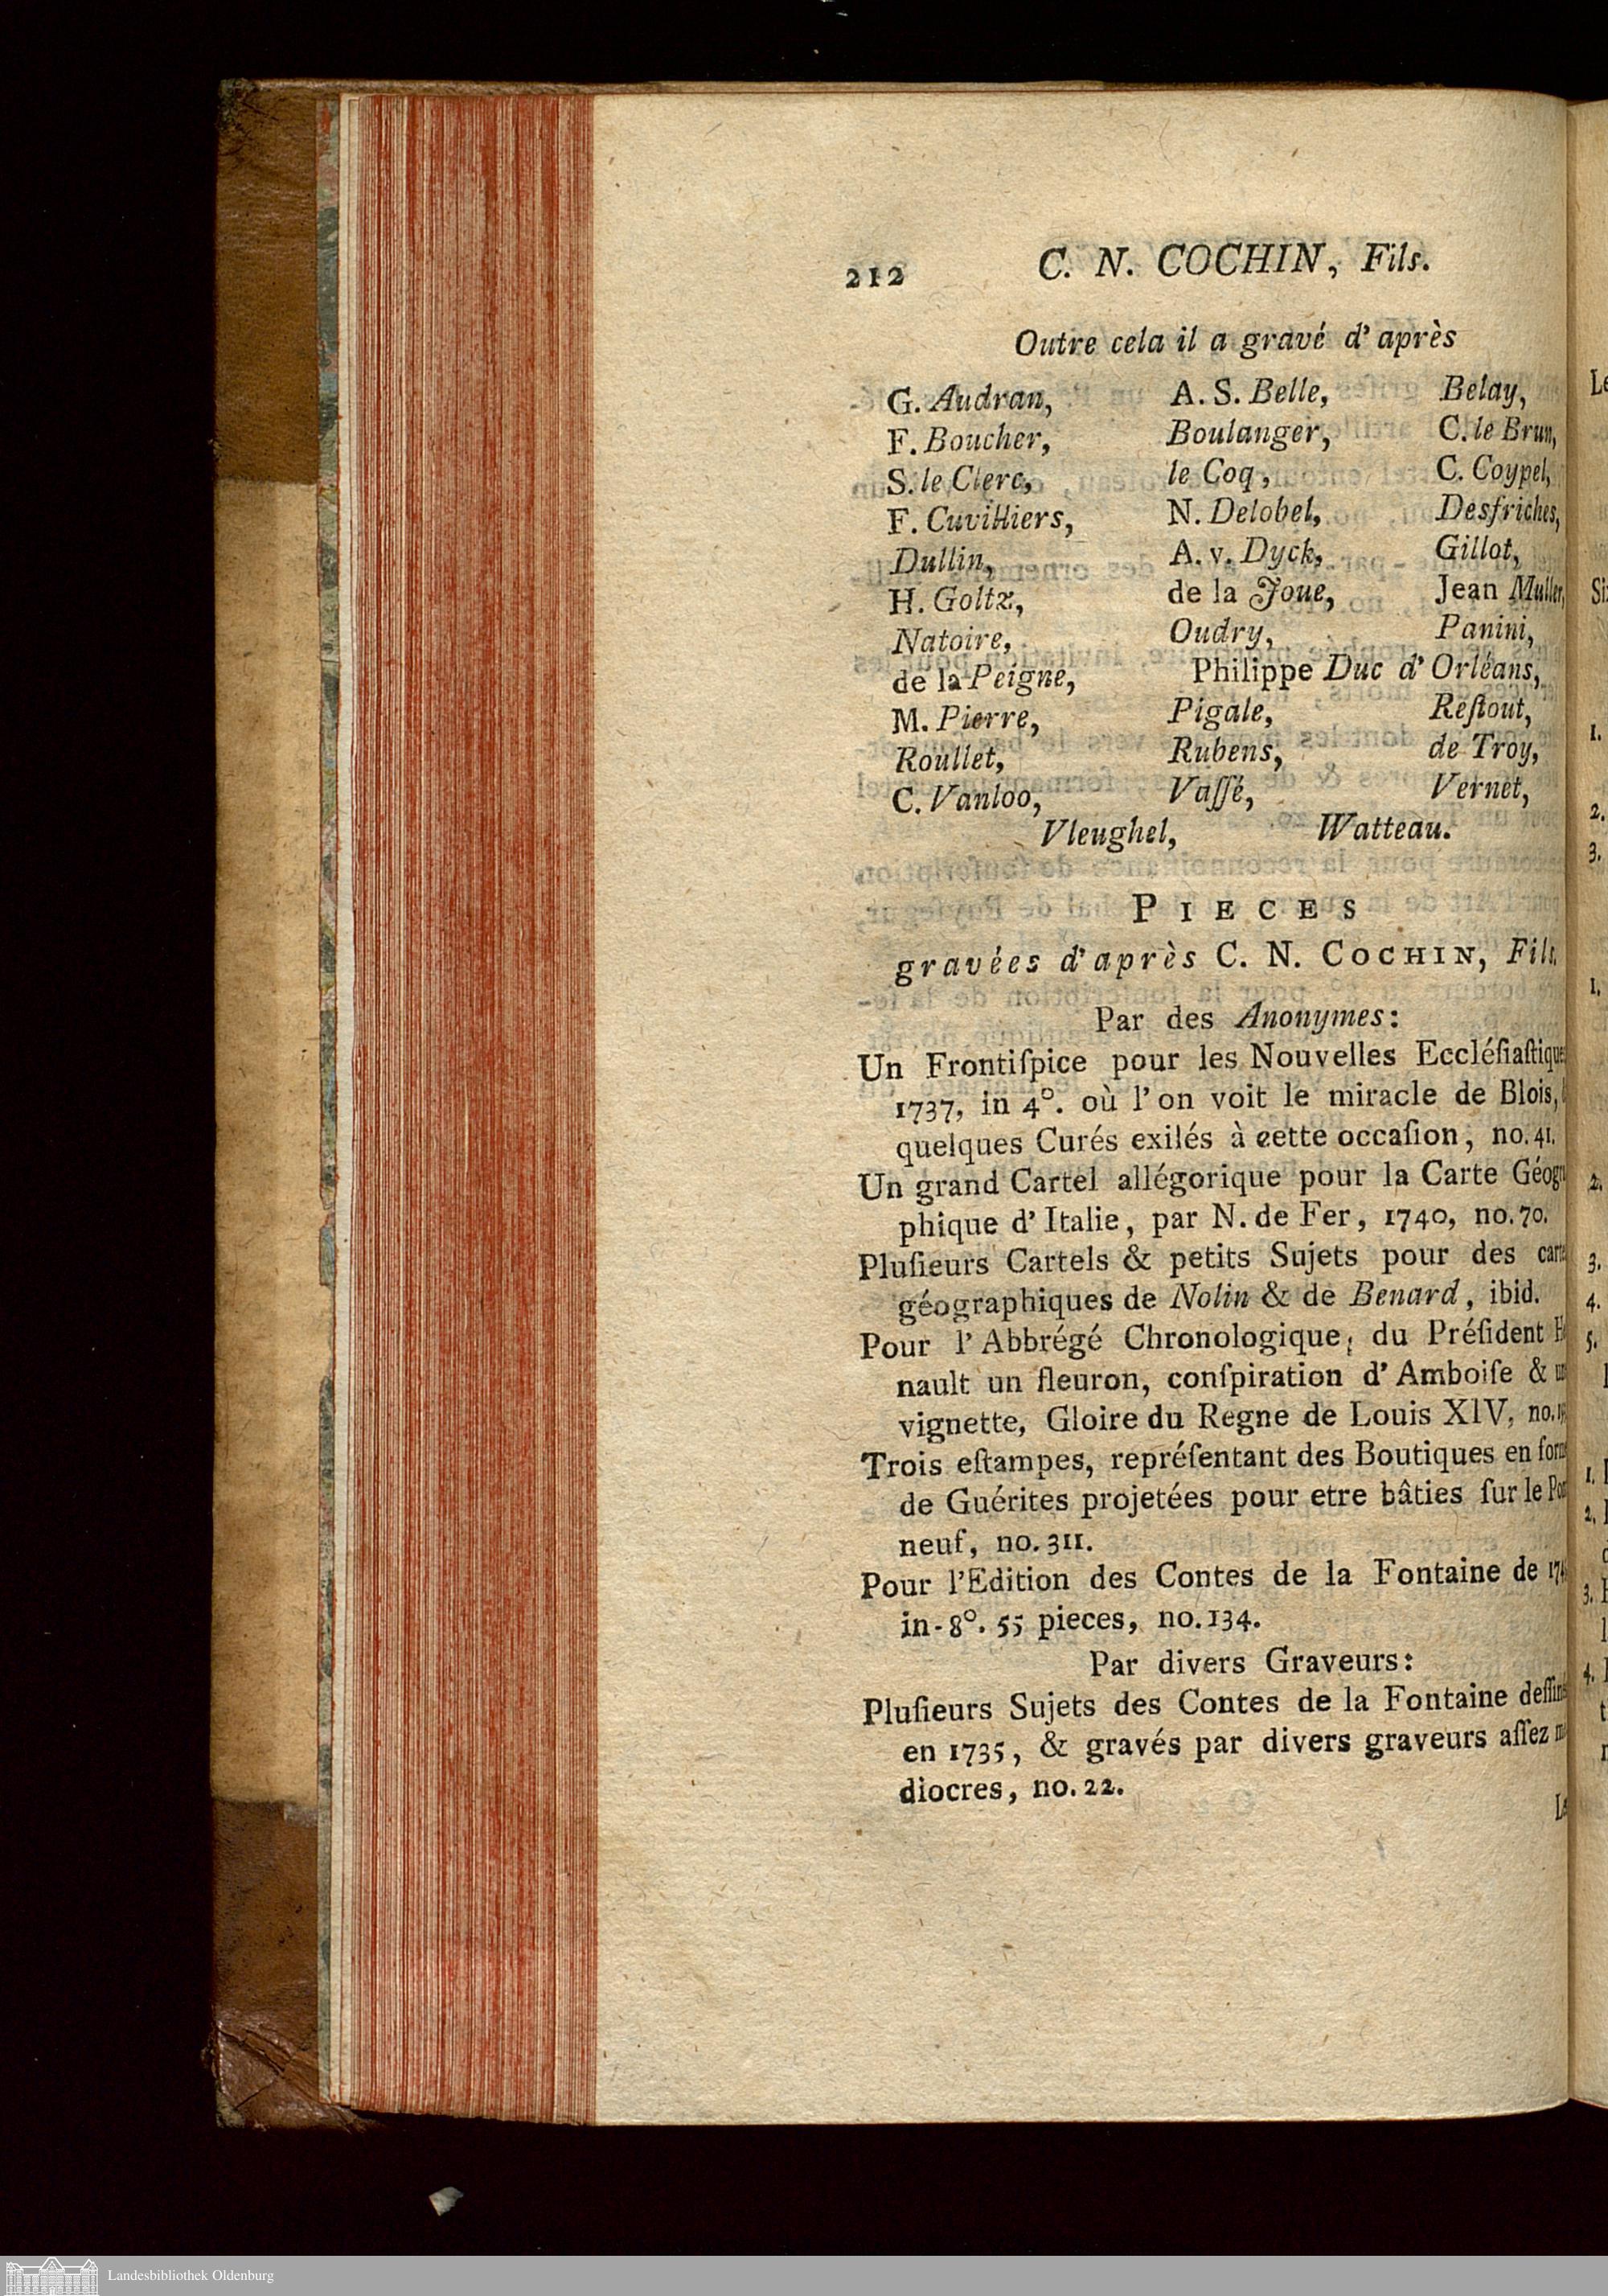 212 C. N. COCHIN, Fils.
Outre cela il a gravé d'après
G. Audran, A. S. Belle, Belay,
F. Boucher, Boulanger, C. le Brun,
S. le Clerc, le Coq, C. Coypel,
F. Cuvilliers, N. Delobel, Desfriches,
Dullin, A. v. Dyck, Gillot,
H. Goltz, de la Joue, Jean Muller,
Natoire, Oudry, Panini,
de la Peigne, Philippe Duc d'Orléans,
M. Pierre, Pigale, Reſtout,
Roullet, Rubens, de Troy,
C. Vanloo, Vaſſé, Vernet,
Vleughel, Watteau.
PIECES
gravées d'après C. N. COCHIN, Fils.
Par des Anonymes:
Un Frontiſpice pour les Nouvelles Eccléſiaſtiques
1737, in 4°. où l'on voit le miracle de Blois,
quelques Curés exilés à cette occaſion, no. 41.
Un grand Cartel allégorique pour la Carte Géogra
phique d'Italie, par N. de Fer, 1740, no. 70.
Pluſieurs Cartels & petits Sujets pour des carte
géographiques de Nolin & de Benard, ibid.
Pour l'Abbrégé Chronologique, du Préſident
nault un fleuron, conſpiration d'Amboiſe &
vignette, Gloire du Regne de Louis XIV, no.
Trois eſtampes, repréſentant des Boutiques en forme
de Guérites projetées pour etre bâties ſur le Pon
neuf, no. 311.
Pour l'Edition des Contes de la Fontaine de
in-8°. 55 pieces, no. 134.
Par divers Graveurs:
Pluſieurs Sujets des Contes de la Fontaine deſſiné
en 1735, & gravés par divers graveurs aſſez
diocres, no. 22.
Le
Landesbibliothek Oldenburg